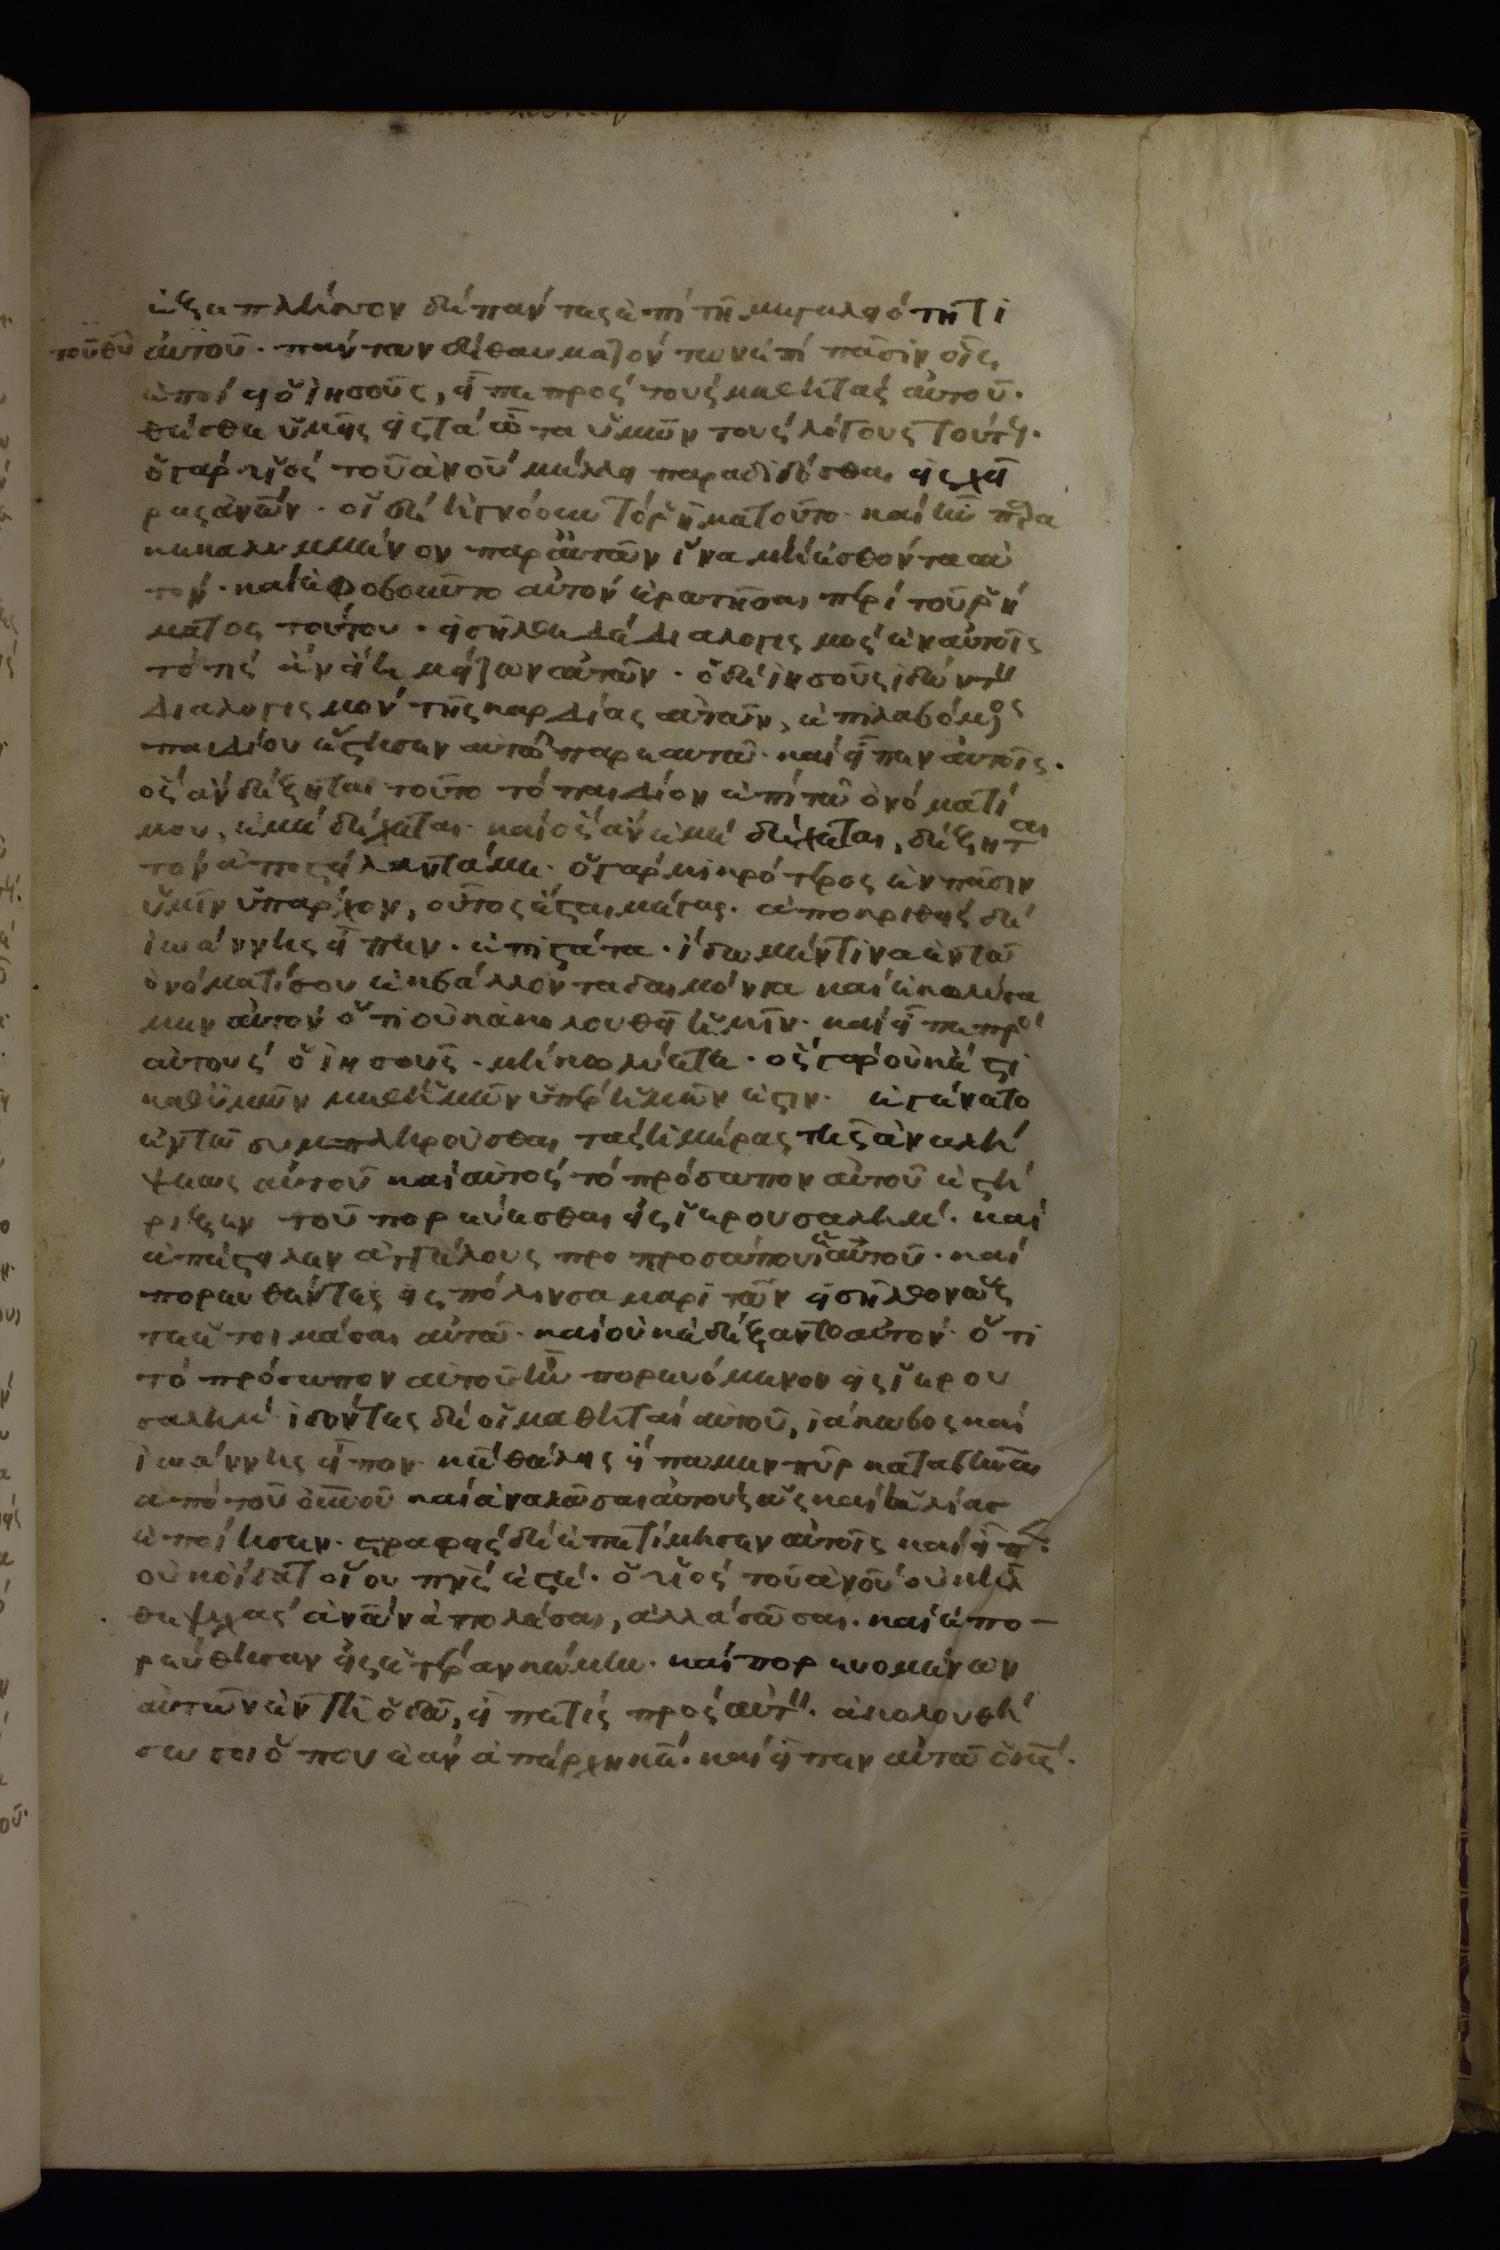 ἐξεπλήσσοντο δὲ πάντες ἐπὶ τῆ μεγαλειότητι
τοῦ θῦ αὐτοῦ· πάντων δὲ θαυμαζόντων ἐπὶ πᾶσιν οἷς
ἐποίει ὁ ἰησοῦς, εἶπε πρὸς τοὺς μαθητὰς αὐτοῦ·
θέσθε ὑμεῖς εἰς τὰ ὦτα ὑμῶν τοὺς λόγους τούτους·
ὁ γὰρ υἱὸς τοῦ ἀνοῦ μέλλει παραδίδοσθαι εἰς χεῖ
ρας ἀνῶν· οἱ δὲ ἠγνόουν τὸ ῥῆμα τοῦτο· καὶ ἦν παρα
κεκαλυμμένον παρ' αὐτῶν ἵνα μὴ αἴσθωνται αὐ
τόν· καὶ ἐφοβοῦντο αὐτὸν ἐρωτῆσαι περὶ τοῦ ῥή
ματος τούτου· εἰσῆλθε δὲ διαλογισμὸς ἐν αὐτοῖς
τὸ τίς ἂν εἴη μείζων αὐτῶν· ὁ δὲ ἰησοῦς ἰδὼν τὸν
διαλογισμὸν τῆς καρδίας αὐτῶν, ἐπιλαβόμενος
παιδίου ἔστησεν αὐτὸ παρ' ἑαυτῶ· καὶ εἶπεν αὐτοῖς·
ὃς ἂν δέξηται τοῦτο τὸ παιδίον ἐπὶ τῶ ὀνόματί
μου, ἐμὲ δέχεται· καὶ ὃς ἂν ἐμὲ δέχεται, δέξηται
τὸν ἀποστείλαντά με· ὁ γὰρ μικρότερος ἐν πᾶσιν
ὑμῖν ὑπάρχων, οὗτος ἔσται μέγας· ἀποκριθεὶς δὲ
ἰωάννης εἶπεν· ἐπιστάτα· ἴδωμέν τινα ἐν τῶ
ὀνόματί σου ἐκβάλλοντα δαιμόνια καὶ ἐκωλύσα
μεν αὐτὸν ὅτι οὐκ ἀκολουθεῖ ἡμῖν· καὶ εἶπε πρὸς
αὐτοὺς ὁ ἰησοῦς· μὴ κωλύετε· ὃς γὰρ οὐκ ἔστι
καθ' ὑμῶν μεθ' ἡμῶν ὑπὲρ ἡμῶν ἐστιν· ἐγένετο
ἐν τῶ συμπληροῦσθαι τὰς ἡμέρας τῆς ἀναλή
ψεως αὐτοῦ καὶ αὐτὸς τὸ πρόσωπον αὐτοῦ ἐστή
ριξεν τοῦ πορεύεσθαι εἰς ἱερουσαλήμ· καὶ
ἀπέστειλεν ἀγγέλους πρὸ προσώπου αὐτοῦ· καὶ
πορευθέντες εἰς πόλιν σαμαριτῶν εἰσῆλθον ὡς
τε ἑτοιμάσαι αὐτῶ· καὶ οὐκ ἐδέξαντο αὐτὸν· ὅτι
τὸ πρόσωπον αὐτοῦ ἦν πορευόμενον εἰς ἱερου
σαλήμ· ἰδόντες δὲ οἱ μαθηταὶ αὐτοῦ, ἰάκωβος καὶ
ἰωάννης εἶπον· κε θέλεις εἴπωμεν πῦρ καταβῆναι
ἀπὸ τοῦ οὐνοῦ καὶ ἀναλῶσαι αὐτοὺς ὡς καὶ ἠλίας
ἐποίησεν· στραφεὶς δὲ ἐπετίμησεν αὐτοῖς καὶ εἶπεν·
οὐκ οἴδατε οἵου πνς ἐστέ· ὁ υἱὸς τοῦ ἀνοῦ οὐκ ἦλ
θε ψυχὰς ἀνῶν ἀπολέσαι, ἀλλὰ σῶσαι· καὶ ἐπο
ρεύθησαν εἰς ἑτέραν κώμην· καὶ πορευομένων
αὐτῶν ἐν τῆ ὁδῶ, εἶπέ τις πρὸς αὐτόν· ἀκολουθή
σω σοι ὅπου ἐὰν ἀπέρχη κε· καὶ εἶπεν αὐτῶ ὁ ις·